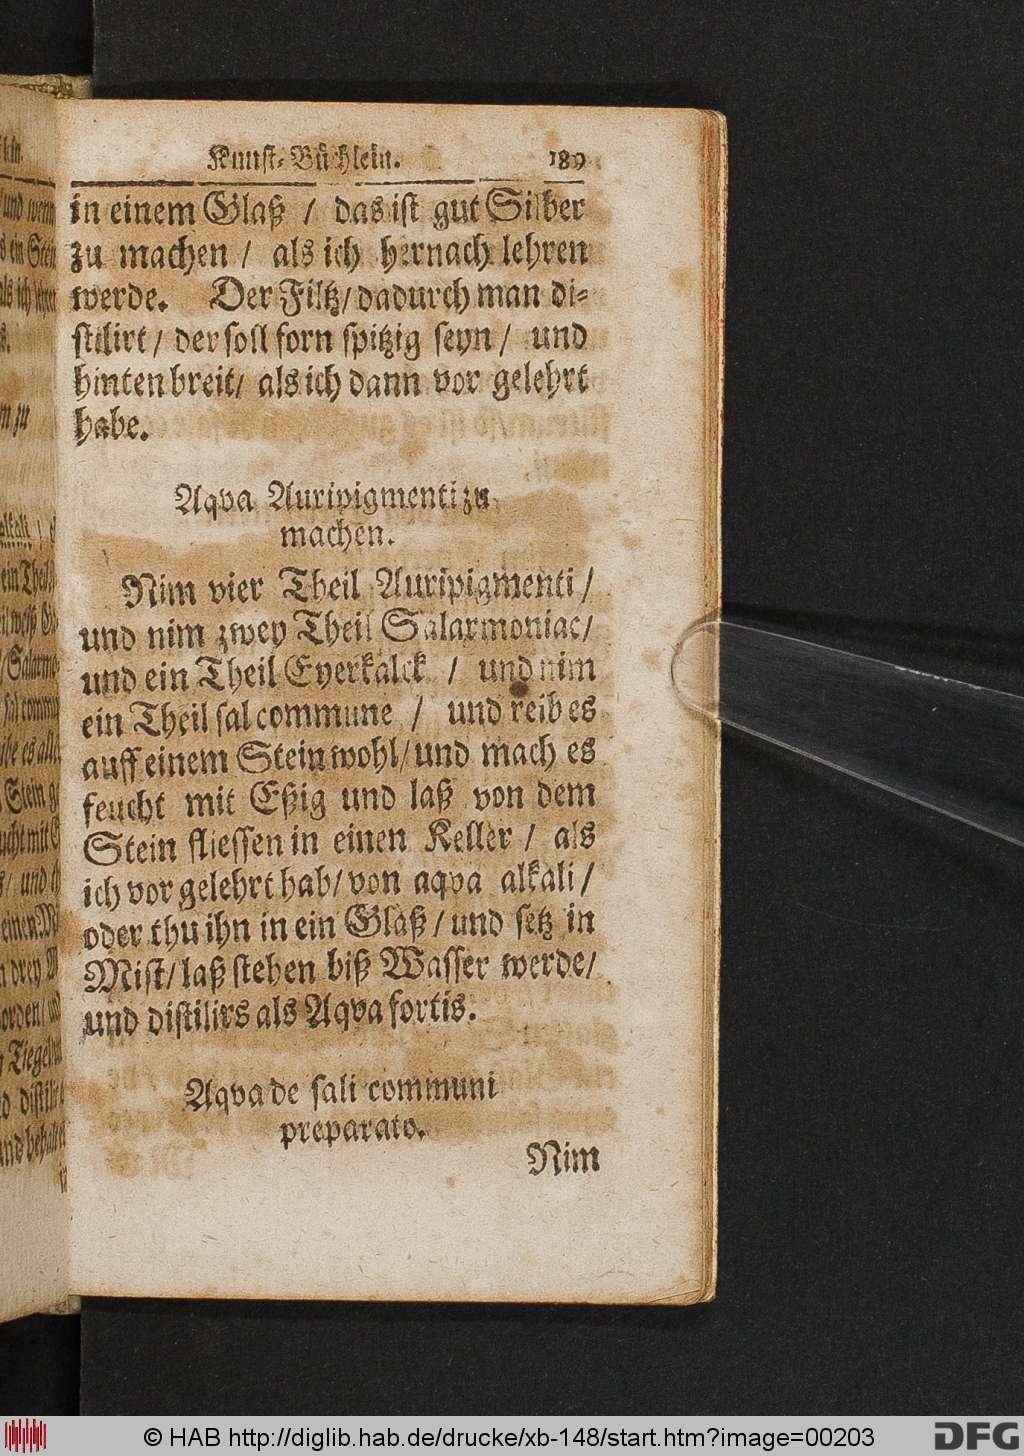 Kunst-Büchlein. 189
in einem Glaß / das ist gut Silber
zu machen / als ich hernach lehren
werde. Der Filtz / dadurch man di-
stilirt / der soll forn spitzig seyn / und
hinten breit / als ich dann vor gelehrt
habe.
Aqva Auripigmenti zu
machen.
Nim vier Theil Auripigmenti /
und nim zwey Theil Salarmoniac /
und ein Theil Eyerkalck / und nim
ein Theil sal commune / und reib es
auff einem Stein wohl / und mach es
feucht mit Eßig und laß von dem
Stein fliessen in einen Keller / als
ich vor gelehrt hab / von aqva alkali /
oder thu ihn in ein Glaß / und setz in
Mist / laß stehen biß Wasser werde /
und distilirs als Aqva fortis.
Aqva de sali communi
preparato.
Nim
© HAB http://diglib.hab.de/drucke/xb-148/start.htm?image=00203
DFG